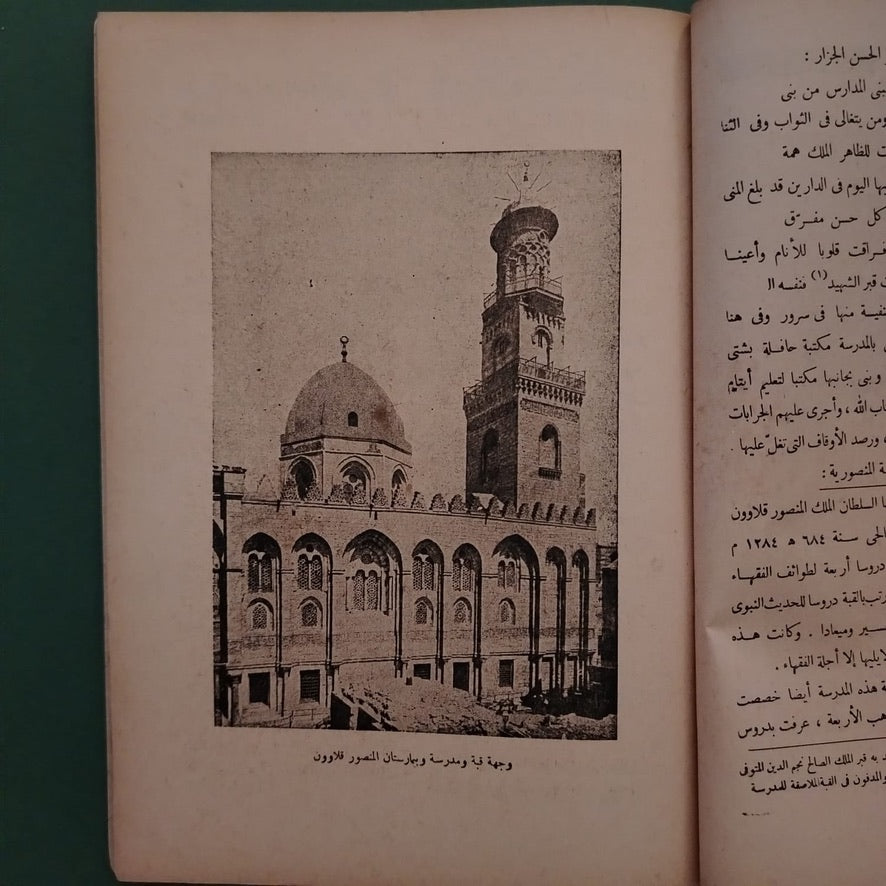 وجهة قبة ومدرسة وبيمارستان المنصور قلاوون
الحسن الجزار :
المدارس من بنى
ومن يتغالى فى الثواب وفى الثنا
للظاهر الملك همة
اليوم فى الدارين قد بلغ المنى
كل حسن مفرّق
فراقت قلوبا للأنام وأعينا
قبر الشهيد (١) فنفسه ال
منها فى سرور وفى هنا
بالمدرسة مكتبة حافلة بشتى
وبنى بجانبها مكتبا لتعليم أيتام
الله ، وأجرى عليهم الجرايات
، ورصد الأوقاف التى تغلّ عليها .
المنصورية :
السلطان الملك المنصور قلاوون
سنة ٦٨٤ ه ١٢٨٤ م
دروسا أربعة لطوائف الفقهاء
بالقبة دروسا للحديث النبوى
وميعادا . وكانت هذه
إلا أجلة الفقهاء .
هذه المدرسة أيضا خصصت
الأربعة ، عرفت بدروس
به قبر الملك الصالح نجم الدين المتوفى
والمدفون فى القبة الملاصقة للمدرسة